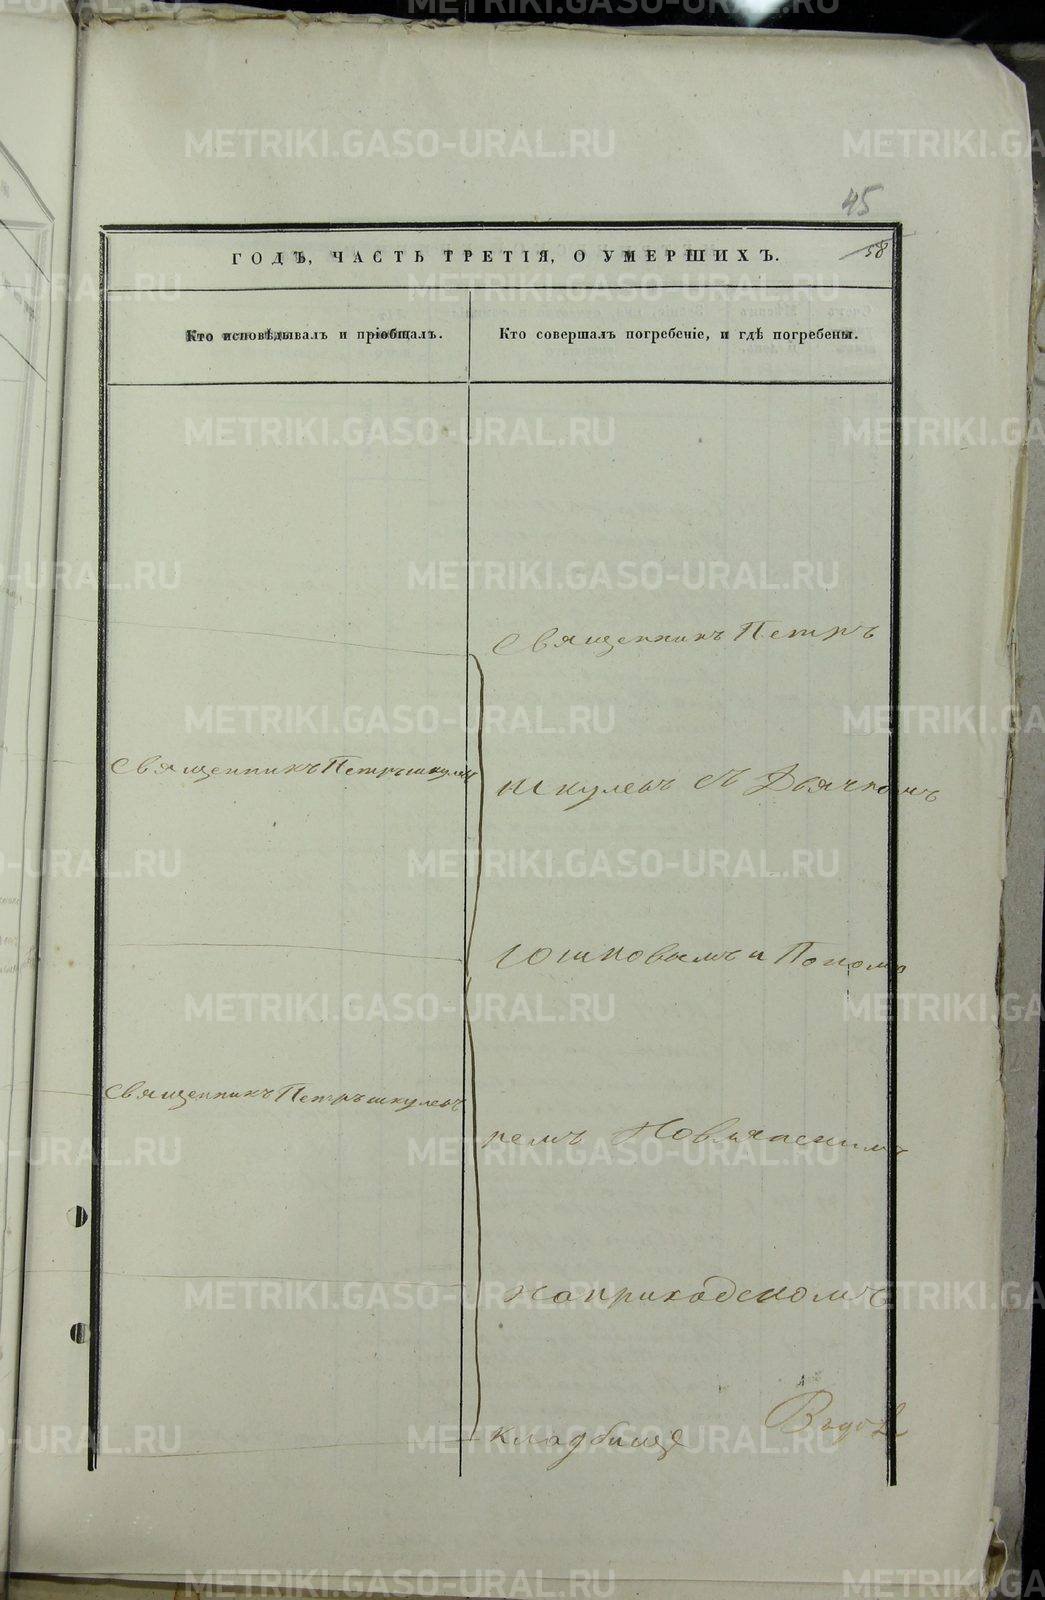 45
58
ГОДЪ, ЧАСТЬ ТРЕТІЯ, О УМЕРШИХЪ.
Кто исповѣдывалъ и пріобщалъ.
Кто совершалъ погребеніе, и гдѣ погребены.
Священникъ Петръ
Священникъ Петръ Шкулевъ
Шкулевъ съ Дьячкомъ
Юшковымъ и Поном
Священникъ Петръ Шкулевъ
ремъ
на приходскомъ
кладбище
METRIKI.GASO-URAL.RU